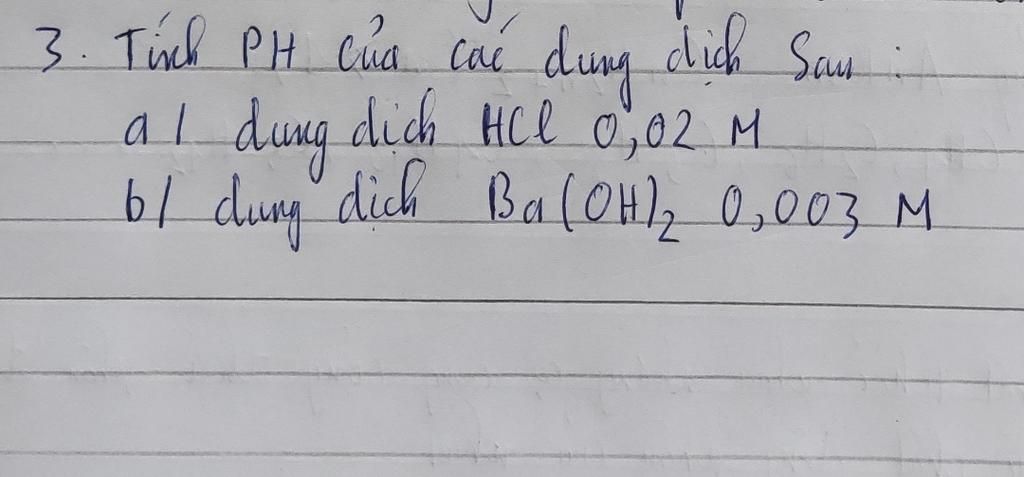 3. Tính PH của các dung dịch Sau :
a/ dung dịch HCl 0,02 M
b/ dung dịch Ba(OH)₂ 0,003 M